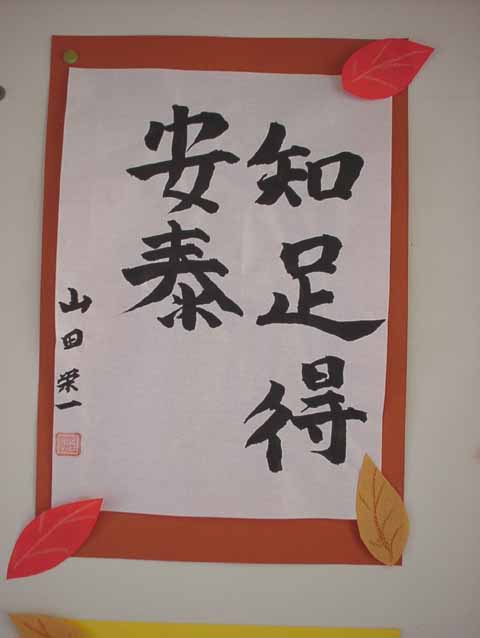 知足得
安泰
山田栄一